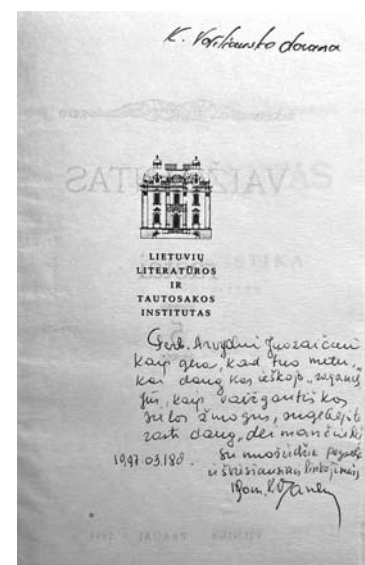 K. Vasiliausko dovana
LIETUVIŲ
LITERATŪROS
IR
TAUTOSAKOS
INSTITUTAS
Gerb. Arvydui Juozaičiui
Kaip gera, kad tuo metu,
kai daug kas ieškojo „raganų“
Jūs, kaip vaižgantiškos
sielos žmogus, sugebėjote
rasti daug „deimančiukų“
Su nuoširdžia pagarba
ir šviesiausiais linkėjimais
1997.03.18d.
VILNIUS PRADAI